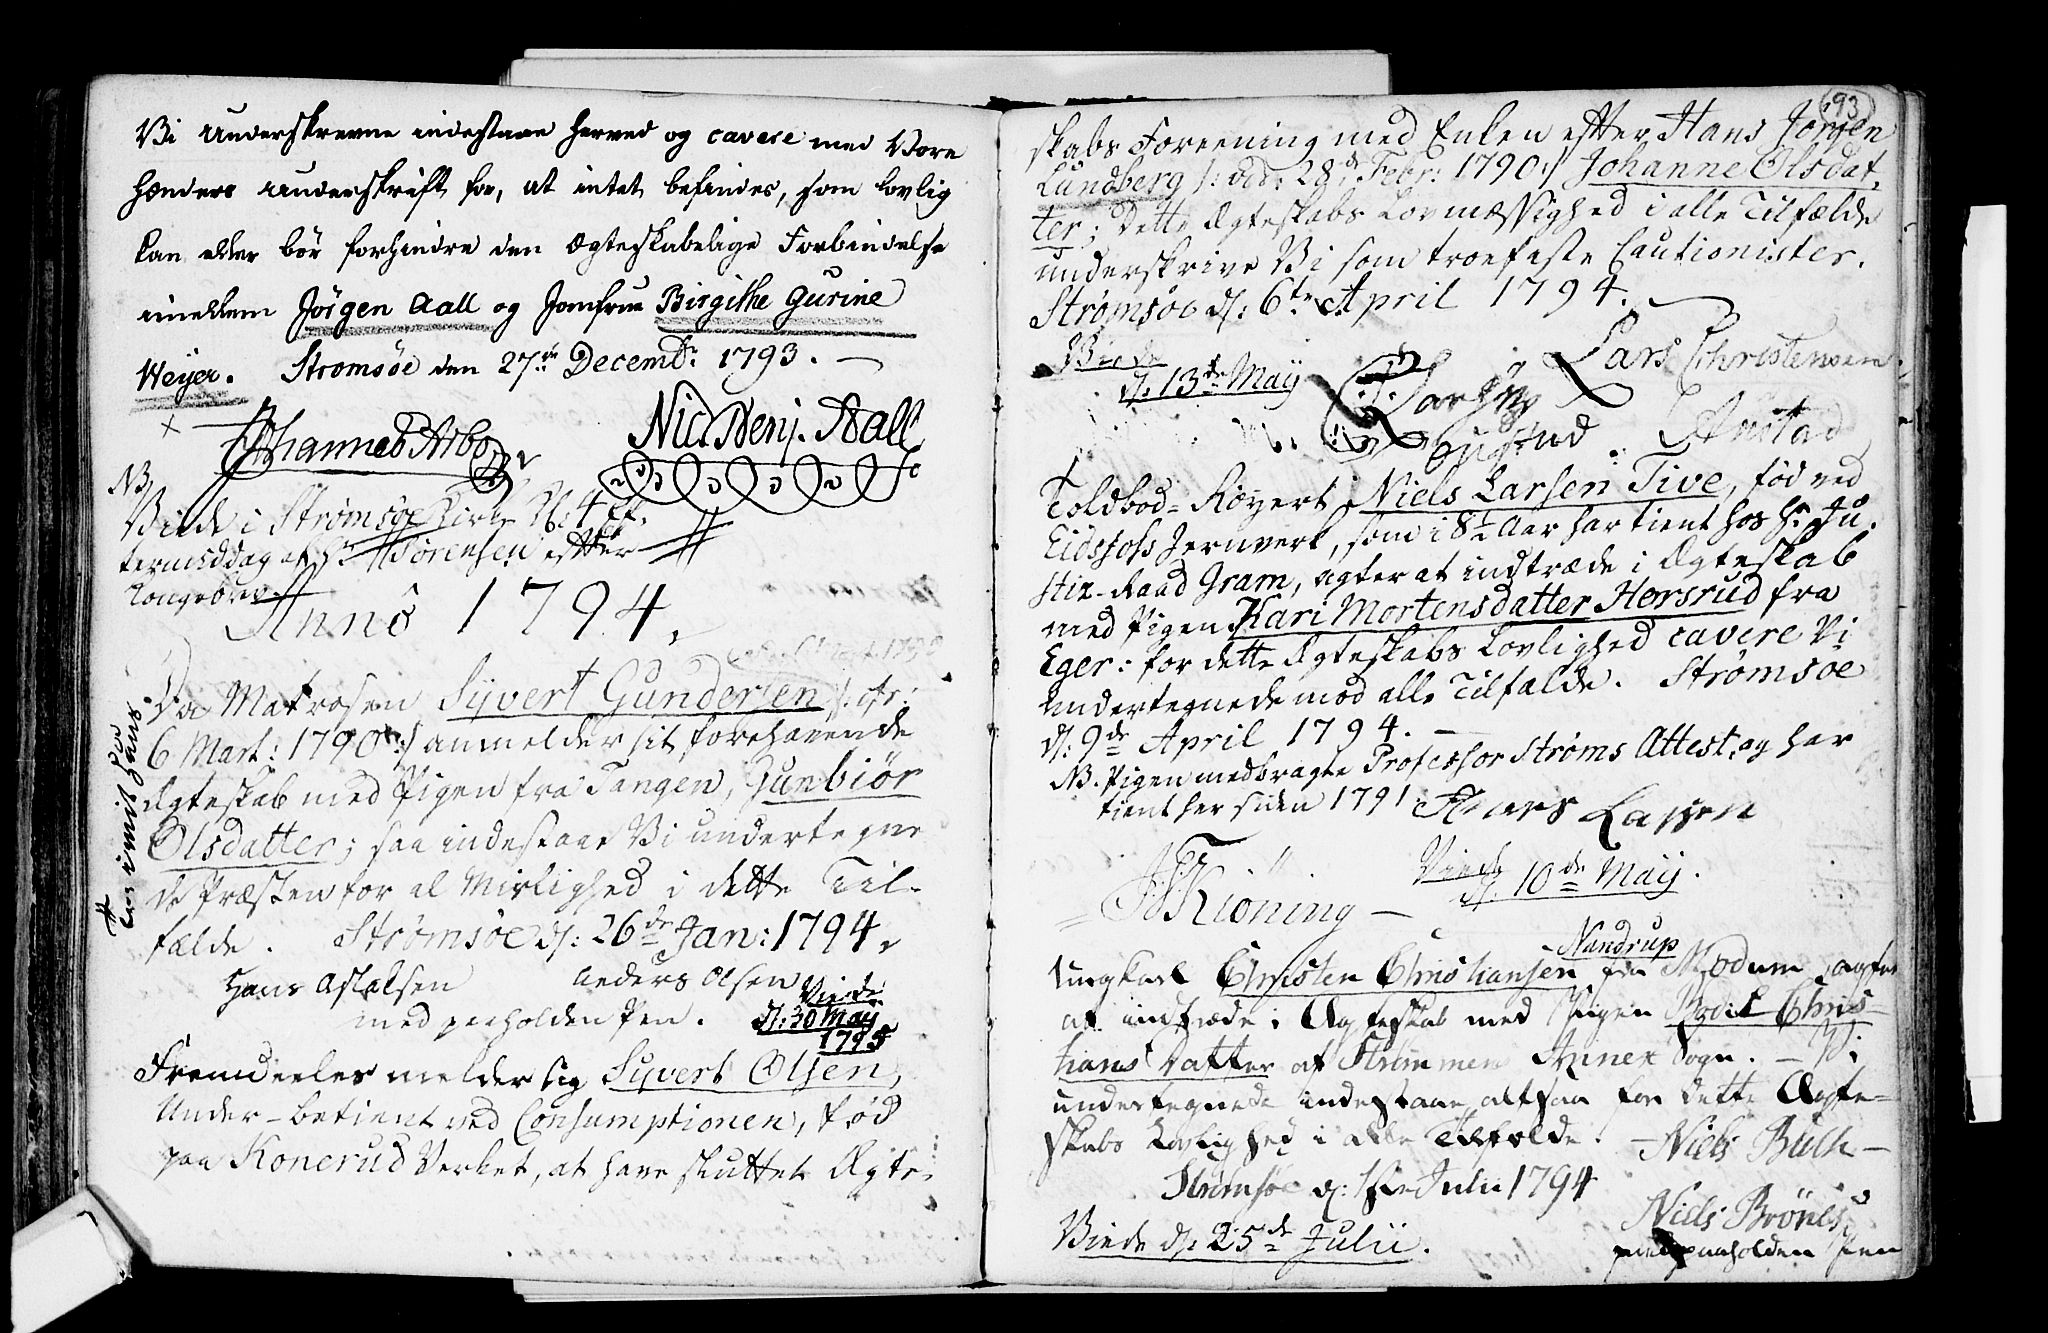 Vi underskrevne indestaae herved og cavere med Vore
Hænders underskrift for, at intet befindes, som lovlig
kan eller bör forhindre den Ægteskabelige Forbindelse
imellem Jörgen Aall og Jomfrue Birgithe Gurine
Weyer. Strømsöe den 27de Decembr: 1793.
Johannes Arbo
Nic. Benj. Aall
NB
Viede i Strømsøe Kirke Kl: 4 Ef-
termiddag af Hr Sørensen efter
Kongebrev
Anno 1794.
Da Matrosen Syvert Gundersen
6 Mart: 1790 anmelder sit forehavende
Ægteskab med Pigen fra Tangen, Gunbiör
Olsdatter; saa indestaae Vi undertegne
de Præsten for al Mislighed i dette Til-
fælde. Strømsöe d: 26de Jan: 1794.
Hans Aslaksen Anders Olsen
med paaholden Pen. Viede
d: 30 May
1795
Fremdeeles melder sig Syvert Olsen,
Under-betient ved Consumptionen, fød
paa Konerud Verket, at have sluttet Ægte-
93
skabs Foreening med Enken efter Hans Jonsen
Lundberg /: död 28de Febr: 1790 :/ Johanne Olsdat-
ter; Dette Ægteskabs Lovmæssighed i alle Tilfælde
underskrive Vi som troefaste Cautionister.
Strømsøe d: 6te April 1794.
Viede
d: 13de May
Lars Christensen
Toldbod-Røyert Niels Larsen Tive, fød ved
Eidsfoss Jernverk, som i 8½ Aar har tient hos Hr Ju-
stiz-Raad Gram, agter at indtræde i Ægteskab
med Pigen Kari Mortensdatter Horsrud fra
Eger: for dette Ægteskabs Lovlighed cavere Vi
undertegnede mod alle Tilfælde. Strømsøe
d: 9de April 1794.
NB. Pigen medbragte Professor Strøms Attest, og har
tient her siden 1791
Lassen
Kiöning
Viede
d: 10de May.
Nandrup
Ungkarl Christen Christiansen fra Modum, agter
at indtræde i Ægteskab med Piigen Bodil Chris-
tians Datter af Strømmens Annex Sogn. - Vi
undertegnede indestaae altsaa for dette Ægte-
skabs Lovlighed i alle Tilfælde. - Niels Buch -
Strømsøe d: Julii 1794
Niels Brönes
med paaholden Pen
Viede d: 25de Julii.